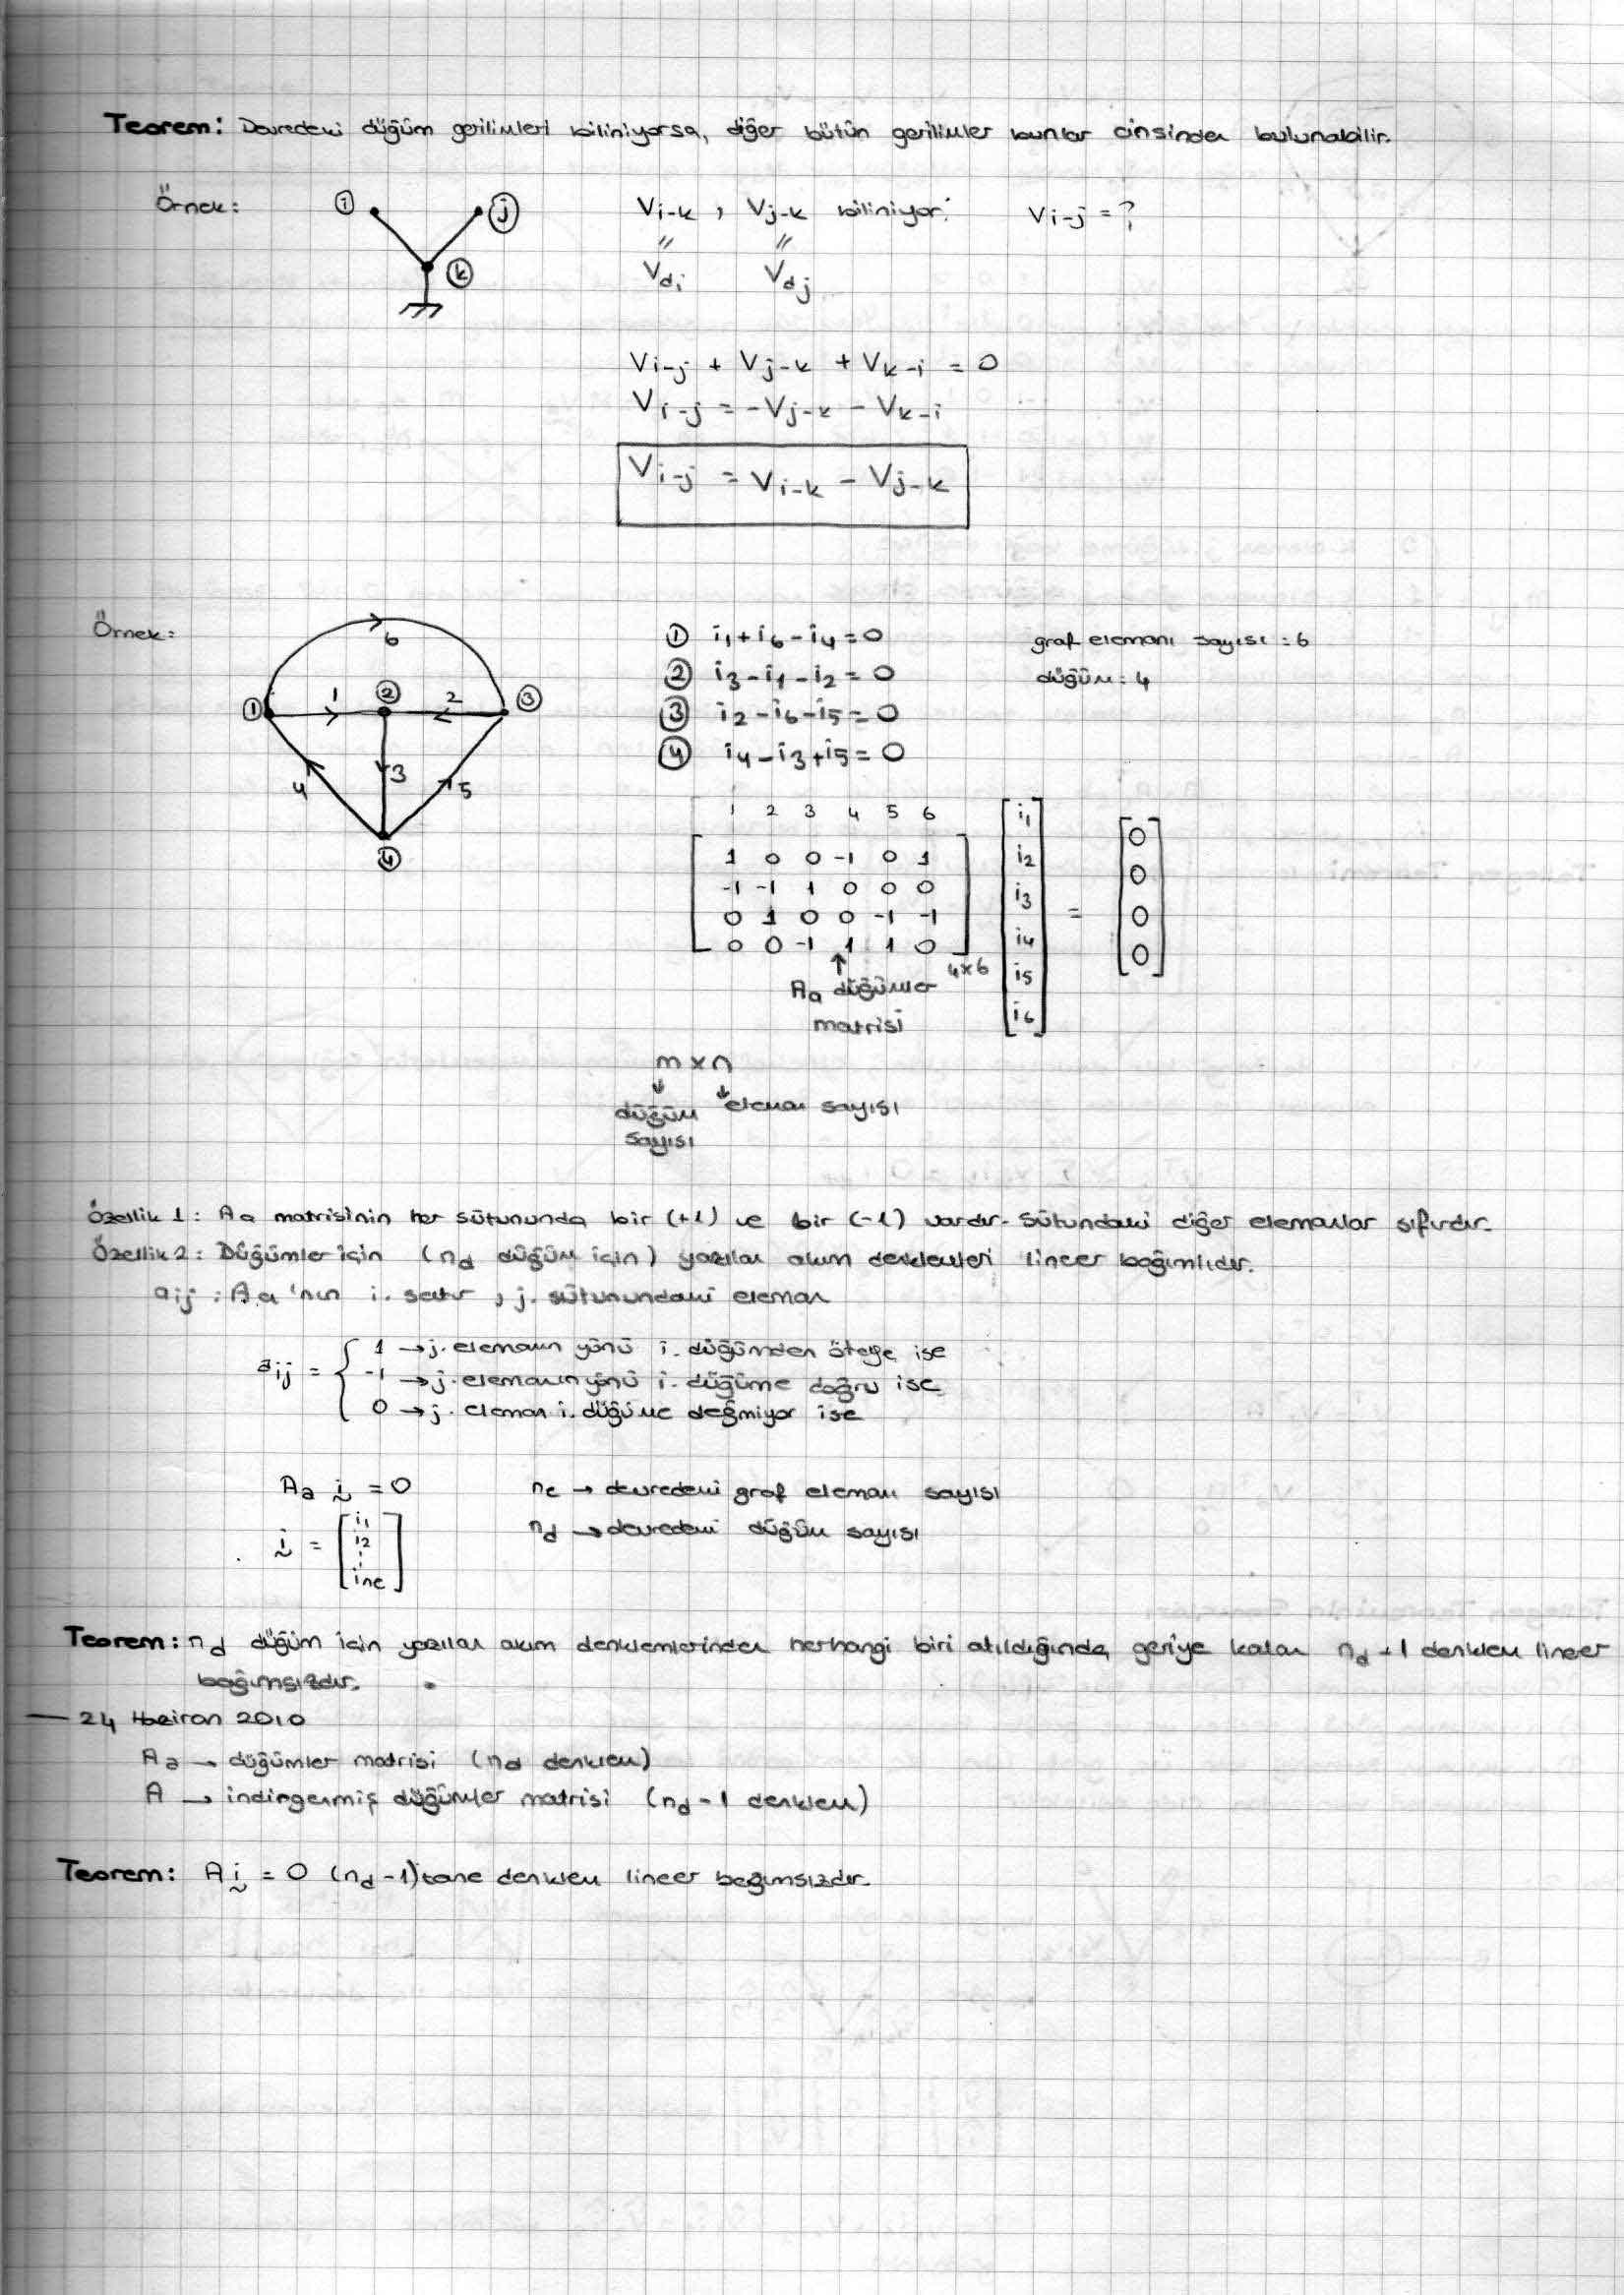 Teorem: Devredeki düğüm gerilimleri biliniyorsa, diğer bütün gerilimler bunlar cinsinden bulunabilir.
Örnek:
i j
k
Vi-k , Vj-k biliniyor. Vi-j = ?
" "
Vdi Vdj
Vi-j + Vj-k + Vk-i = 0
Vi-j = -Vj-k - Vk-i
Vi-j = Vi-k - Vj-k
Örnek:
6
1 1 2 2 3
4 3 5
4
① i1+i6-i4=0 graf elemanı sayısı : 6
② i3-i1-i2=0 düğüm : 4
③ i2-i6-i5=0
④ i4-i3+i5=0
1 2 3 4 5 6
1 0 0 -1 0 1
-1 -1 1 0 0 0
0 1 0 0 -1 -1
0 0 -1 1 1 0
4x6
i1
i2
i3
i4
i5
i6
=
0
0
0
0
↑
Aa düğümler
matrisi
m x n
düğüm sayısı
eleman sayısı
Özellik 1: Aa matrisinin her sütununda bir (+1) ve bir (-1) vardır. Sütundaki diğer elemanlar sıfırdır.
Özellik 2: Düğümler için (nd düğüm için) yazılan akım denklemleri lineer bağımlıdır.
aij : Aa 'nın i. satır , j. sütunundaki eleman
aij = { 1 → j. elemanın yönü i. düğümden öteye ise
-1 → j. elemanın yönü i. düğüme doğru ise
0 → j. eleman i. düğüme değmiyor ise
Aa i = 0 ne → devredeki graf eleman sayısı
nd → devredeki düğüm sayısı
i = [ i1
i2
⋮
ine ]
Teorem: nd düğüm için yazılan akım denklemlerinden herhangi biri atıldığında, geriye kalan nd -1 denklem lineer
bağımsızdır.
— 24 Haziran 2010
Aa → düğümler matrisi (nd denklem)
A → indirgenmiş düğümler matrisi (nd -1 denklem)
Teorem: A i = 0 (nd -1) tane denklem lineer bağımsızdır.